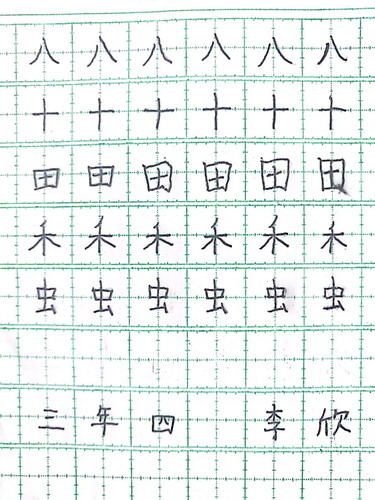 八八八八八八
十十十十十十
田田田田田田
禾禾禾禾禾禾
虫虫虫虫虫虫
三年四 李欣